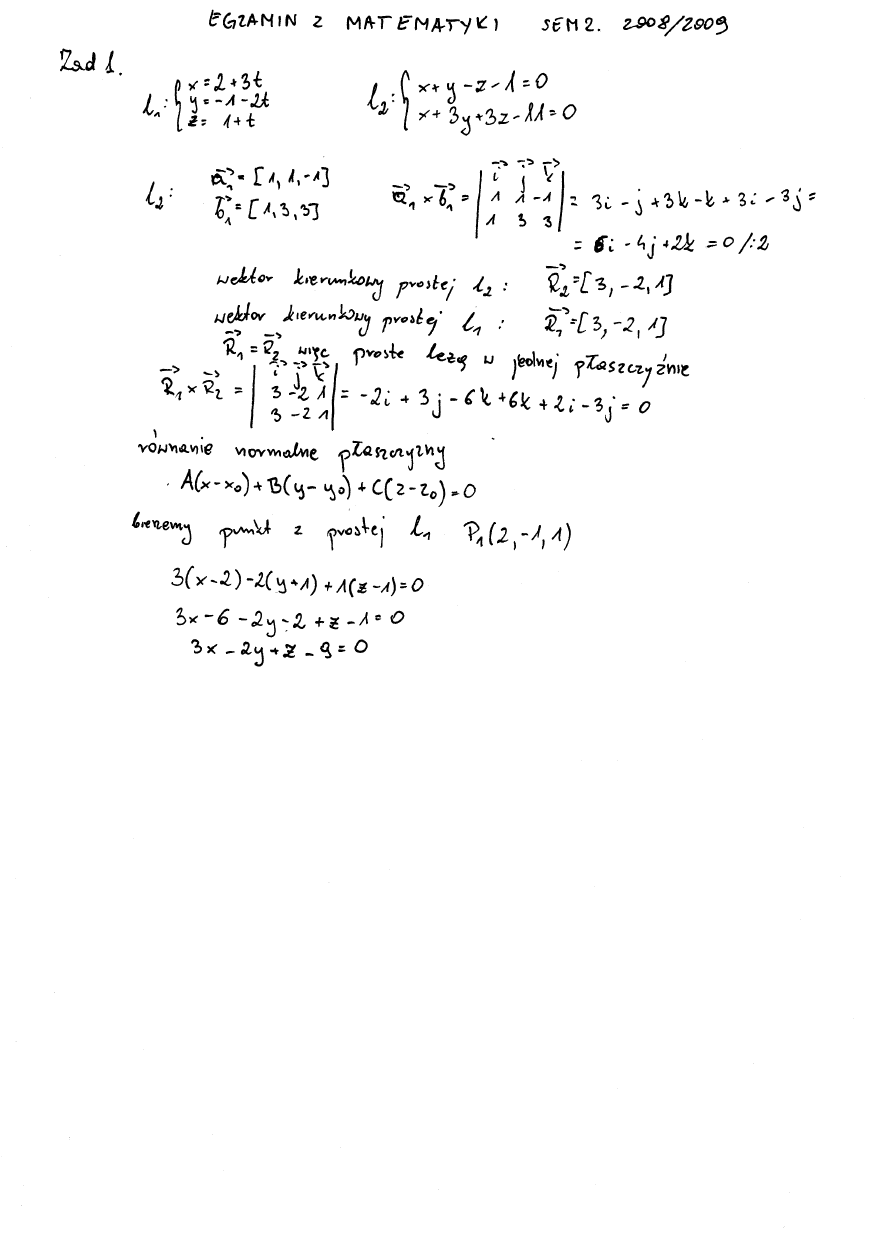 EGZAMIN Z MATEMATYKI SEM 2. 2008/2009
Zad 1.
l₁: { x = 2+3t
y = -1-2t
z = 1+t
l₂: { x+y-z-1=0
x+3y+3z-11=0
l₂: a₁→ = [1, 1, -1]
b₁→ = [1, 3, 3]
a₁→ × b₁→ = | i→ j→ k→ |
| 1 1 -1 | = 3i - j + 3k - k + 3i - 3j =
| 1 3 3 |
= 6i - 4j + 2k = 0 /:2
wektor kierunkowy prostej l₂: R₂→ = [3, -2, 1]
wektor kierunkowy prostej l₁: R₁→ = [3, -2, 1]
R₁→ = R₂→ więc proste leżą w jednej płaszczyźnie
R₁→ × R₂→ = | i→ j→ k→ |
| 3 -2 1 | = -2i + 3j - 6k + 6k + 2i - 3j = 0
| 3 -2 1 |
równanie normalne płaszczyzny
A(x-x₀) + B(y-y₀) + C(z-z₀) = 0
bierzemy punkt z prostej l₁ P₁(2, -1, 1)
3(x-2) - 2(y+1) + 1(z-1) = 0
3x - 6 - 2y - 2 + z - 1 = 0
3x - 2y + z - 9 = 0